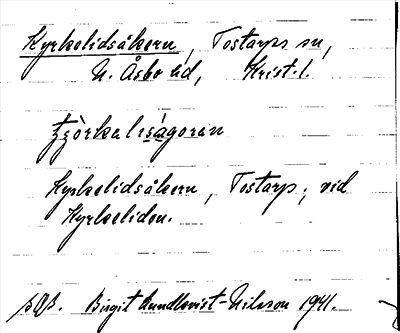 Kyrkelidsåkern, Tostarps sn,
N. Åsbo hd, Krist. l.
Kyrkelidsåkern, Tostarp; vid
Kyrkeliden.
Birgit Lundkvist-Nilsson 1941.